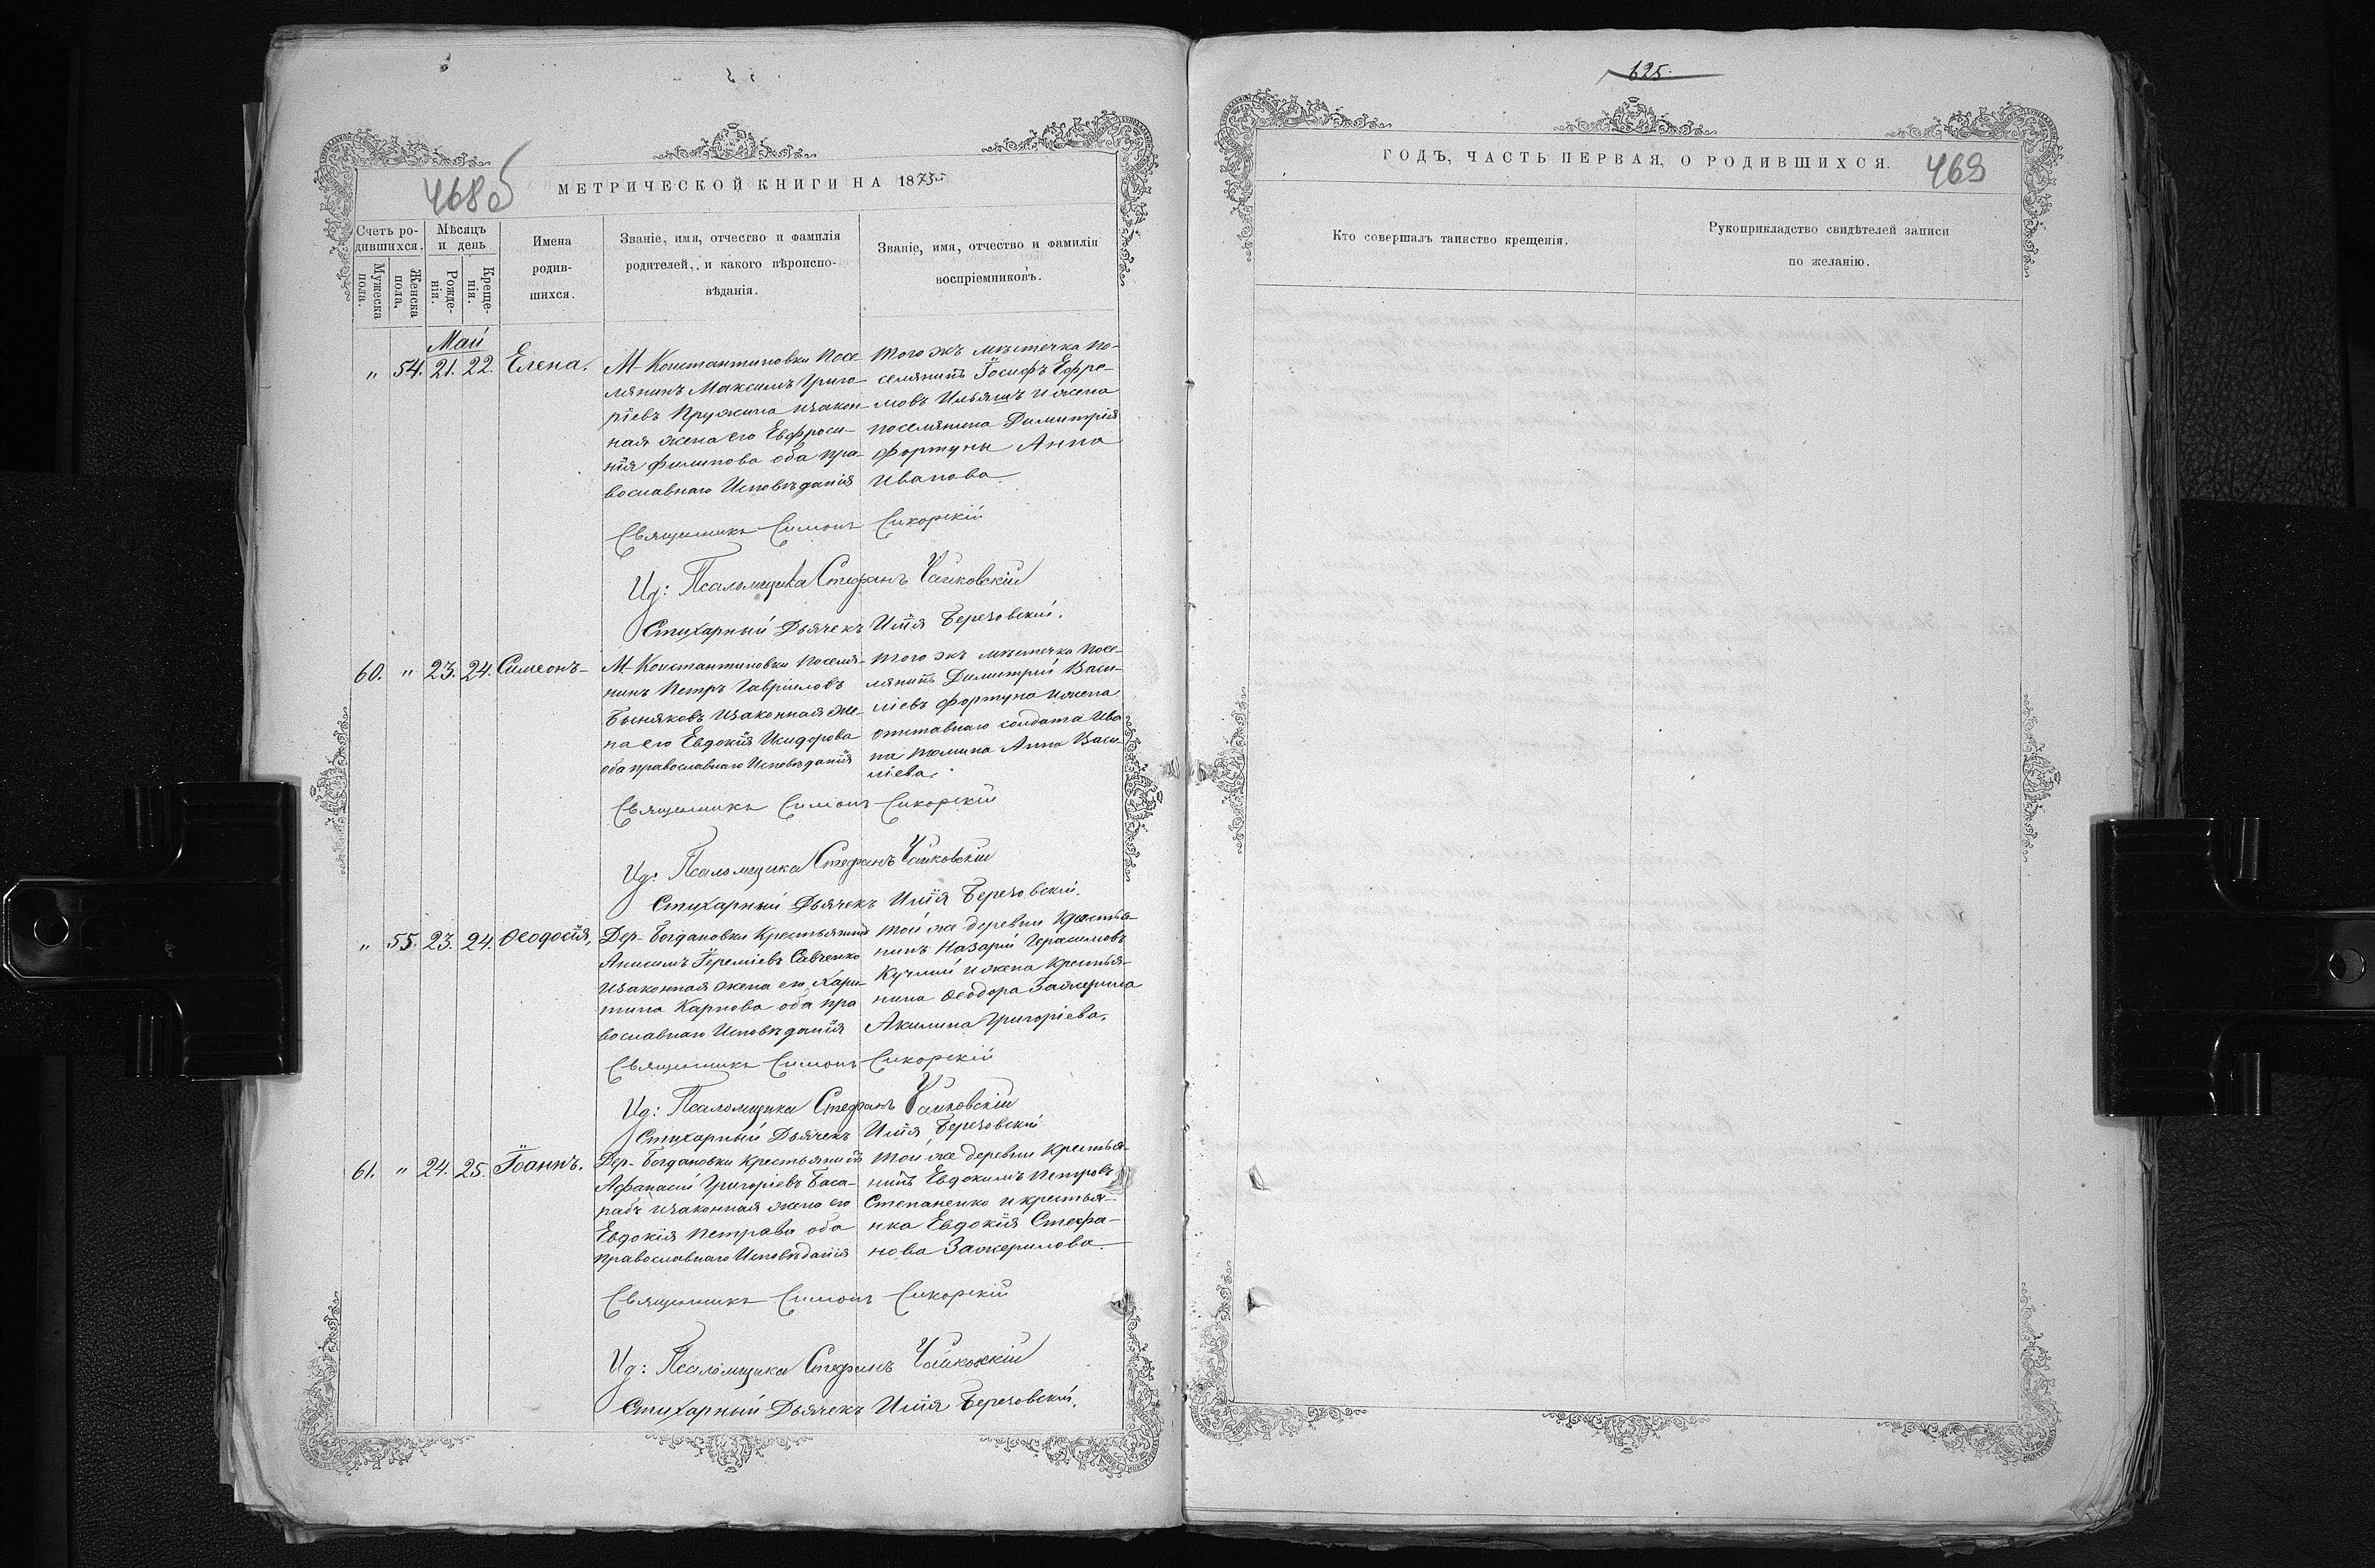 468б
МЕТРИЧЕСКОЙ КНИГИ НА 1875
Счетъ ро-
дившихся.
Мѣсяцъ
и день
Мужеска
пола.
Женска
пола.
Рожде-
нія.
Креще-
нія.
Имена
родив-
шихся.
Званіе, имя, отчество и фамилія
родителей, и какого вѣроиспо-
вѣданія.
Званіе, имя, отчество и фамилія
воспріемниковъ.
Май
" 54. 21. 22. Елена.
М. Константиновки посе-
лянинъ Максимъ Григо-
ріевъ Пружина изакон-
ная жена его Евфроси-
нія Филипова оба пра-
вославнаго Исповѣданія
Того жъ мѣстечка по-
селянинъ Іосифъ Ефре-
мовъ Ильяшъ и жена
поселянина Димитрія
Фортуны Анна
Иванова
Священникъ Симонъ Сикорскій
Ид: Псаломщика Стефанъ Чайковскій
Стихарный Дьячекъ Илія Березовскій.
60. " 23. 24. Симеонъ-
М. Константиновки поселя-
нинъ Петръ Гавріиловъ
Бысняковъ изаконная же-
на его Евдокія Исидорова
оба православнаго Исповѣданія
Того жъ мѣстечка посе-
лянинъ Димитрій Васи-
ліевъ Фортуна и жена
отставнаго солдата Ива
на Анна Васи-
ліева.
Священникъ Симонъ Сикорскій
Ид: Псаломщика Стефанъ Чайковскій
Стихарный Дьячекъ Илія Березовскій.
" 55. 23. 24. Ѳеодосія,
Дер. Богдановки Крестьянинъ
Анисимъ Іереміевъ Савченко
изаконная жена его Хари-
тина Карпова оба пра
вославнаго Исповѣданія
Той же деревни Крестья-
нинъ Назарій Герасимовъ
Кучмій и жена Крестья-
нина Ѳеодора Зажерила
Акилина Григоріева.
Священникъ Симонъ Сикорскій
Ид: Псаломщика Стефанъ Чайковскій
Стихарный Дьячекъ Илія Березовскій
61. " 24. 25. Іоаннъ.
Дер. Богдановки Крестьянинъ
Афанасій Григоріевъ Баса-
рабъ изаконная жена его
Евдокія Петрова оба
православнаго Исповѣданія
Той же деревни Крестья-
нинъ Евдокимъ Петровъ
Степаненко и крестья-
нка Евдокія Стефа-
нова Зажерилова.
Священникъ Симонъ Сикорскій
Ид: Псаломщика Стефанъ Чайковскій
Стихарный Дьячекъ Илія Березовскій.
625.
ГОДЪ, ЧАСТЬ ПЕРВАЯ, О РОДИВШИХСЯ.
469
Кто совершалъ таинство крещенія.
Рукоприкладство свидѣтелей записи
по желанію.